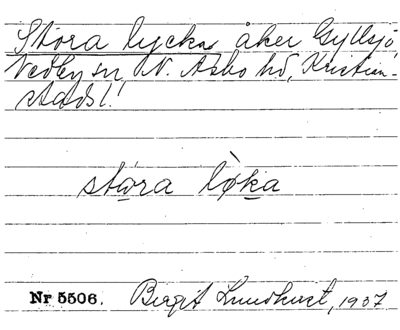 Stora lycka åker Gyllsjö
Vedby sn, N. Åsbo hd, Kristian-
stads l.
stora løka
Nr 5506. Birgit Lundkvist, 1937